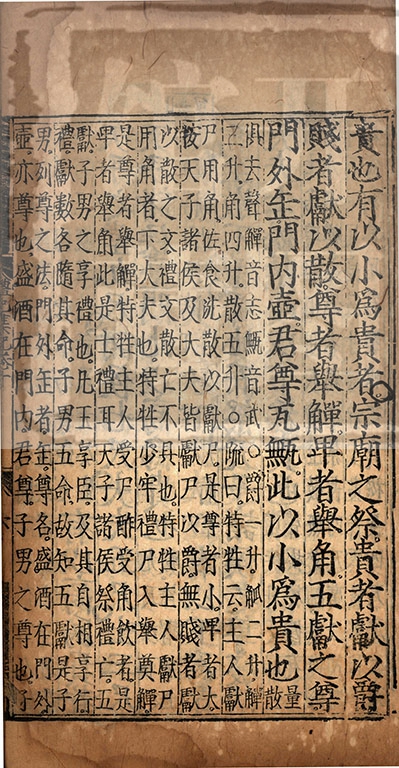 貴也有以小爲貴者宗廟之祭貴者獻以爵
賤者獻以散尊者舉觶卑者舉角五獻之尊
門外缶門内壺君尊瓦甒此以小爲貴也量散
俱去聲觶音志甒音武○爵一升觚二升觶
三升角四升散五升○疏曰特牲云主人獻
尸用角佐食洗散以獻尸是尊者小卑者大
按天子諸侯及大夫皆獻尸以爵無賤者獻
以散之文禮文散亡不具也特牲主人獻尸
用角者下大夫也特牲少牢禮尸入舉奠觶
是尊者舉觶特牲主人受尸酢受角飲者是
卑者舉角此是士禮耳天子諸侯祭禮亡五
獻子男之享禮也凡王享臣及其自相享行
禮獻數各隨其命子男五命故知五獻是子
男列尊之法門外缶者缶尊名盛酒在門外
壺亦尊也盛酒在門内君尊子男之尊也子